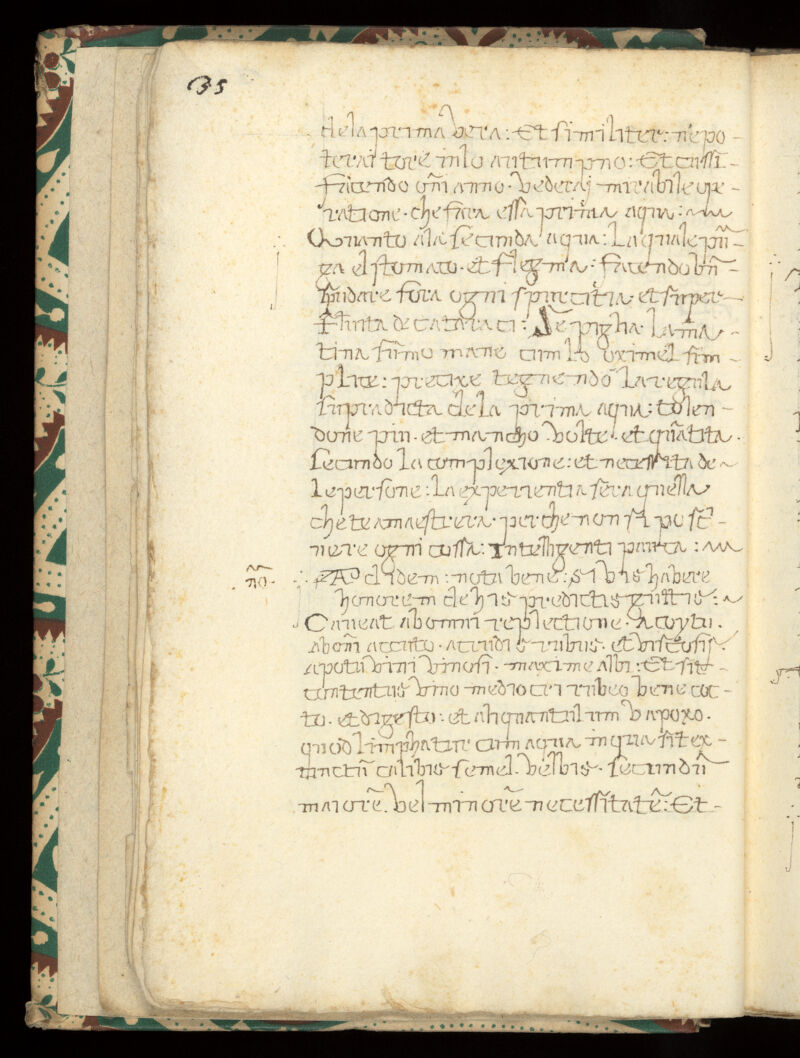 35
dela prima vera: Et similiter: ne po-
terai tore in lo autumpno: Et cussi-
facendo om̃ anno. vederaj mirabile ope-
ratione. che fara essa prima aqua:
Quanto ala secunda aqua: La quale pũ-
ga el stomaco. et flegma: facendo
fora ogni spurcitia et super-
fluita de cataraci: Se piglia La ma-
tina summo mane cum lo oximel sim-
plice: tegnendo La regula
supradicta dela prima aqua: tolen-
done piu. et mancho volte. et quãtita.
secundo La complexione: et necessita de
le persone: La experientia sera quella
che te amaestrera. perche non si po scr̃-
uere ogni cossa: Intelligenti pauca:
no.
Ad idem: nota bene: si vis habere
honorem de his predictis guttis:
Caueat ab omni repletione. A coytu.
Ab om̃i aceto. Acribus rebus. et viscosis.
a potu vini vinosi. maxime Albi: Et sit
contentus vino mediocri rubeo bene coc-
to. et digesto: et aliquantulum vapoxo.
quod limphatur cum aqua in qua sit ex-
tinctũ calibis semel. vel bis. secundũ
maiorẽ. vel minorẽ necessitatẽ: Et-